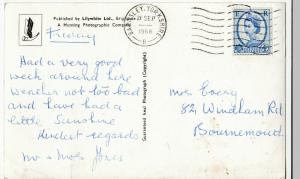 Published by Lilywhite Ltd., Brighouse
A Morning Photographic Company
Friday
Had a very good
week around here
weather not too bad
and have had a
little Sunshine
Kindest regards
Mr & Mrs Jones
Guaranteed Real Photograph (Copyright)
YORKSHIRE
SEP
1968
Mrs
82, Windham Rd
Bournemouth